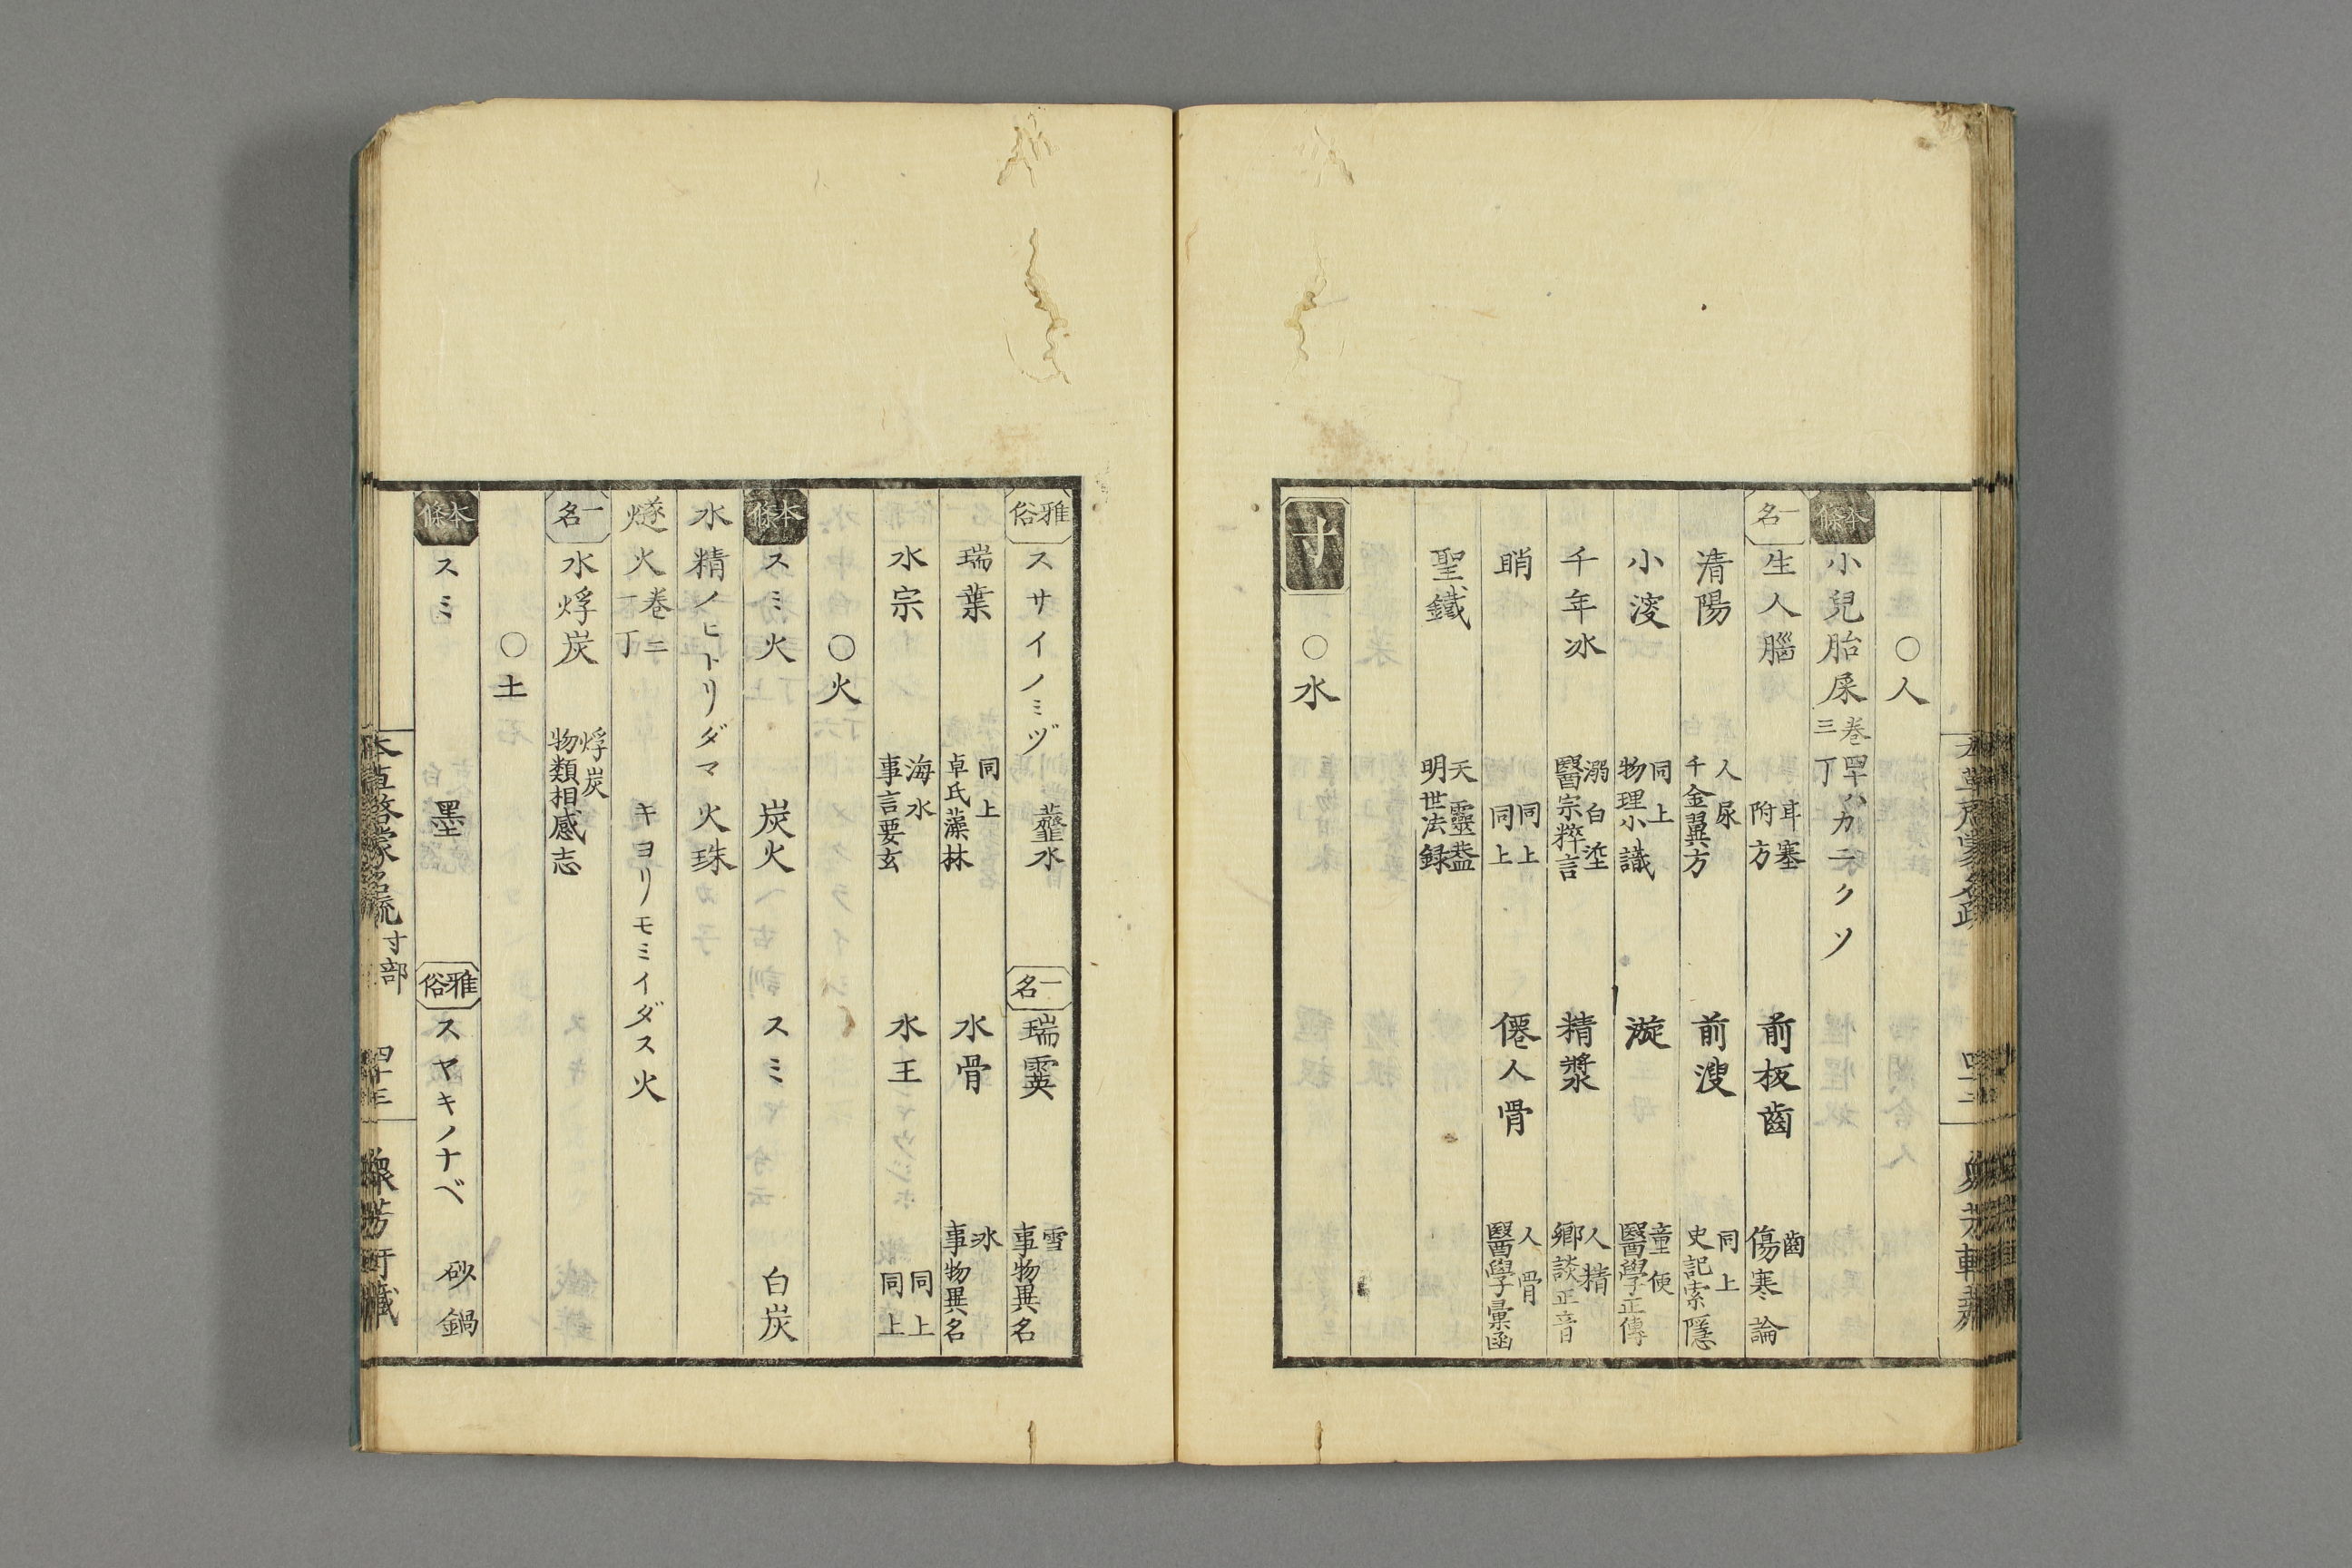 ○人
本條 小兒胎屎 卷四十八 三丁 カニクソ
一名 生人腦 耳塞 附方 前板齒 齒 傷寒論
清陽 人尿 千金翼方 前溲 同上 史記索隱
小溲 同上 物理小識 漩 童便 醫學正傳
千年冰 溺白垽 醫宗粹言 精漿 人精 鄉談正音
睄 同上 同上 僊人骨 人骨 醫學彙函
聖鐵 天靈蓋 明世法録
寸 ○水
雅俗 スサイノミヅ 虀水 一名 瑞霙 雪 事物異名
瑞葉 同上 卓氏藻林 水骨 冰 事物異名
水宗 海水 事言要玄 水王 同上 同上
○火
本條 スミ火 炭火 スミ 白炭
水精ノヒトリダマ 火珠
燧火 卷二 一丁 キヨリモミイダス火
一名 水烰炭 烰炭 物類相感志
○土
本條 スミ 墨 雅俗 スヤキノナベ 砂鍋
本草啓蒙名疏 寸部 四十三 衆芳軒藏